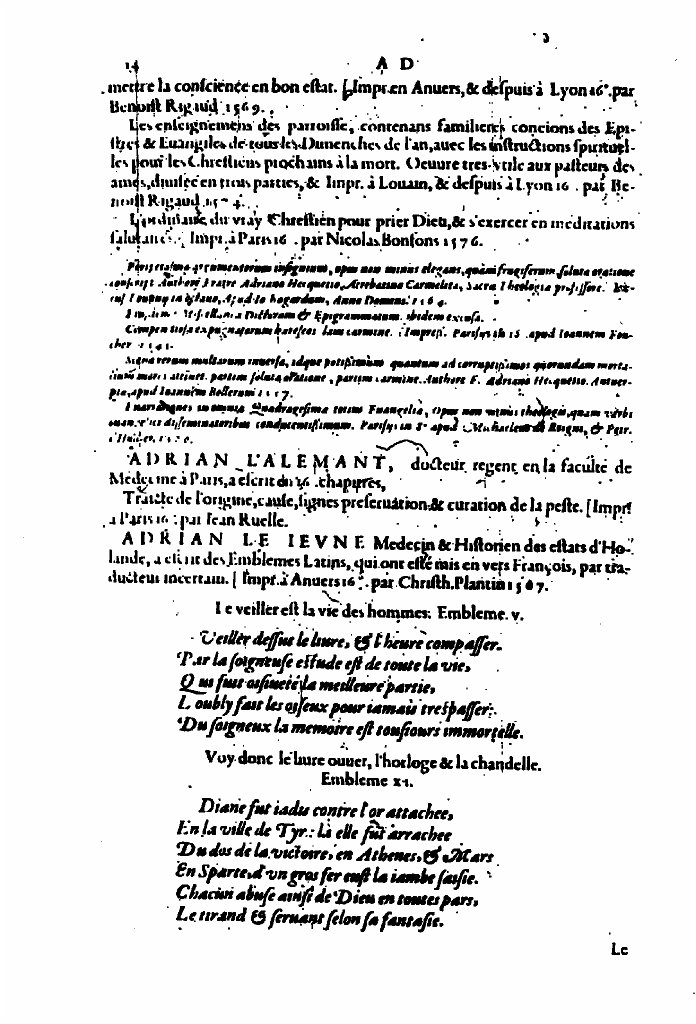 14 A D
mettre la conscience en bon estat. [Impr. en Anuers, & despuis à Lyon 16°. par
Benoist Rigaud 1569.
Les enseignemens des parroisse, contenans familieres concions des Epi-
stres & Euangiles de tous les Dimenches de l'an, auec les instructions spirituel-
les pour les Chrestiens prochains à la mort. Oeuure tres-vtile aux pasteurs des
ames, diuisée en trois parties, & Impr. à Louain, & despuis à Lyon 16. par Be-
noist Rigaud 1574.
du vray Chrestien pour prier Dieu, & s'exercer en meditations
salutaires. Impr. à Paris 16. par Nicolas Bonfons 1576.
argumentorum insignium, opus non minus elegans, quàm frugiferum, soluta oratione
Authore Fratre Adriano Hecquetio, Atrebatino Carmelita, Sacra Theologia professore.
apud Io hogardum, Anno Domini 1564.
& Epigrammatum. ibidem excusa.
Compendiosa expugnatarum hæreseos carmine. Impress. Parisijs in 16. apud Ioannem Fou-
cher 1541.
multarum inuersa, idque potissimum quantum ad corruptissimos quorundam morta-
lium mores attinet. partim soluta oratione, partim carmine. Authore F. Adriano Hecquetio. Antuer-
pia, apud Ioannem Bellerum 1557.
in omnia Quadragesima totius Euangelia, Opus non minus theologis, quam verbi
disseminatoribus conducentissimum. Parisijs in 8° apud & Petr.
ADRIAN L'ALEMANT, docteur regent en la faculté de
Medecine à Paris, a escrit en 36. chapitres,
Traicté de l'origine, cause, signes preseruation & curation de la peste. [Impr.
à Paris 16°. par Iean Ruelle.
ADRIAN LE IEVNE Medecin & Historien des estats d'Ho-
lande, a escrit des Emblemes Latins, qui ont esté mis en vers François, par tra-
ducteur incertain. [Impr. à Anuers 16°. par Christh. Plantin 1567.
Le veiller est la vie des hommes. Embleme. v.
Veiller dessus le liure, & l'heure compasser.
Par la soigneuse estude est de toute la vie,
Qui fuit oisiueté la meilleure partie,
L'oubly fait les oiseux pour iamais trespasser:
Du soigneux la memoire est tousiours immortelle.
Voy donc le liure ouuer, l'horloge & la chandelle.
Embleme xi.
Diane fut iadis contre l'or attachee,
En la ville de Tyr: là elle fut arrachee
Du dos de la victoire, en Athenes, & Mars
En Sparte, d'vn gros fer eust la iambe saisie.
Chacun abuse ainsi de Dieu en toutes pars,
Le tirand & seruant selon sa fantasie.
Le